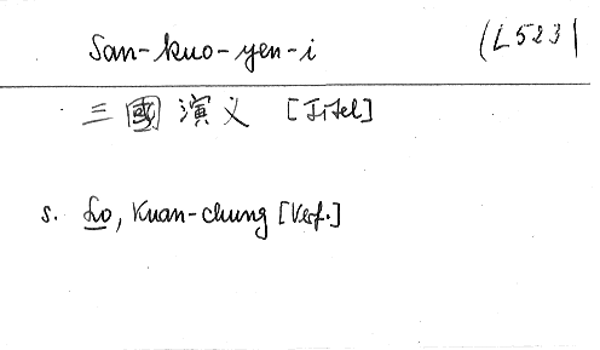 San-kuo-yen-i (L523)
三國演义 [Titel]
s. Lo, Kuan-chung [Verf.]